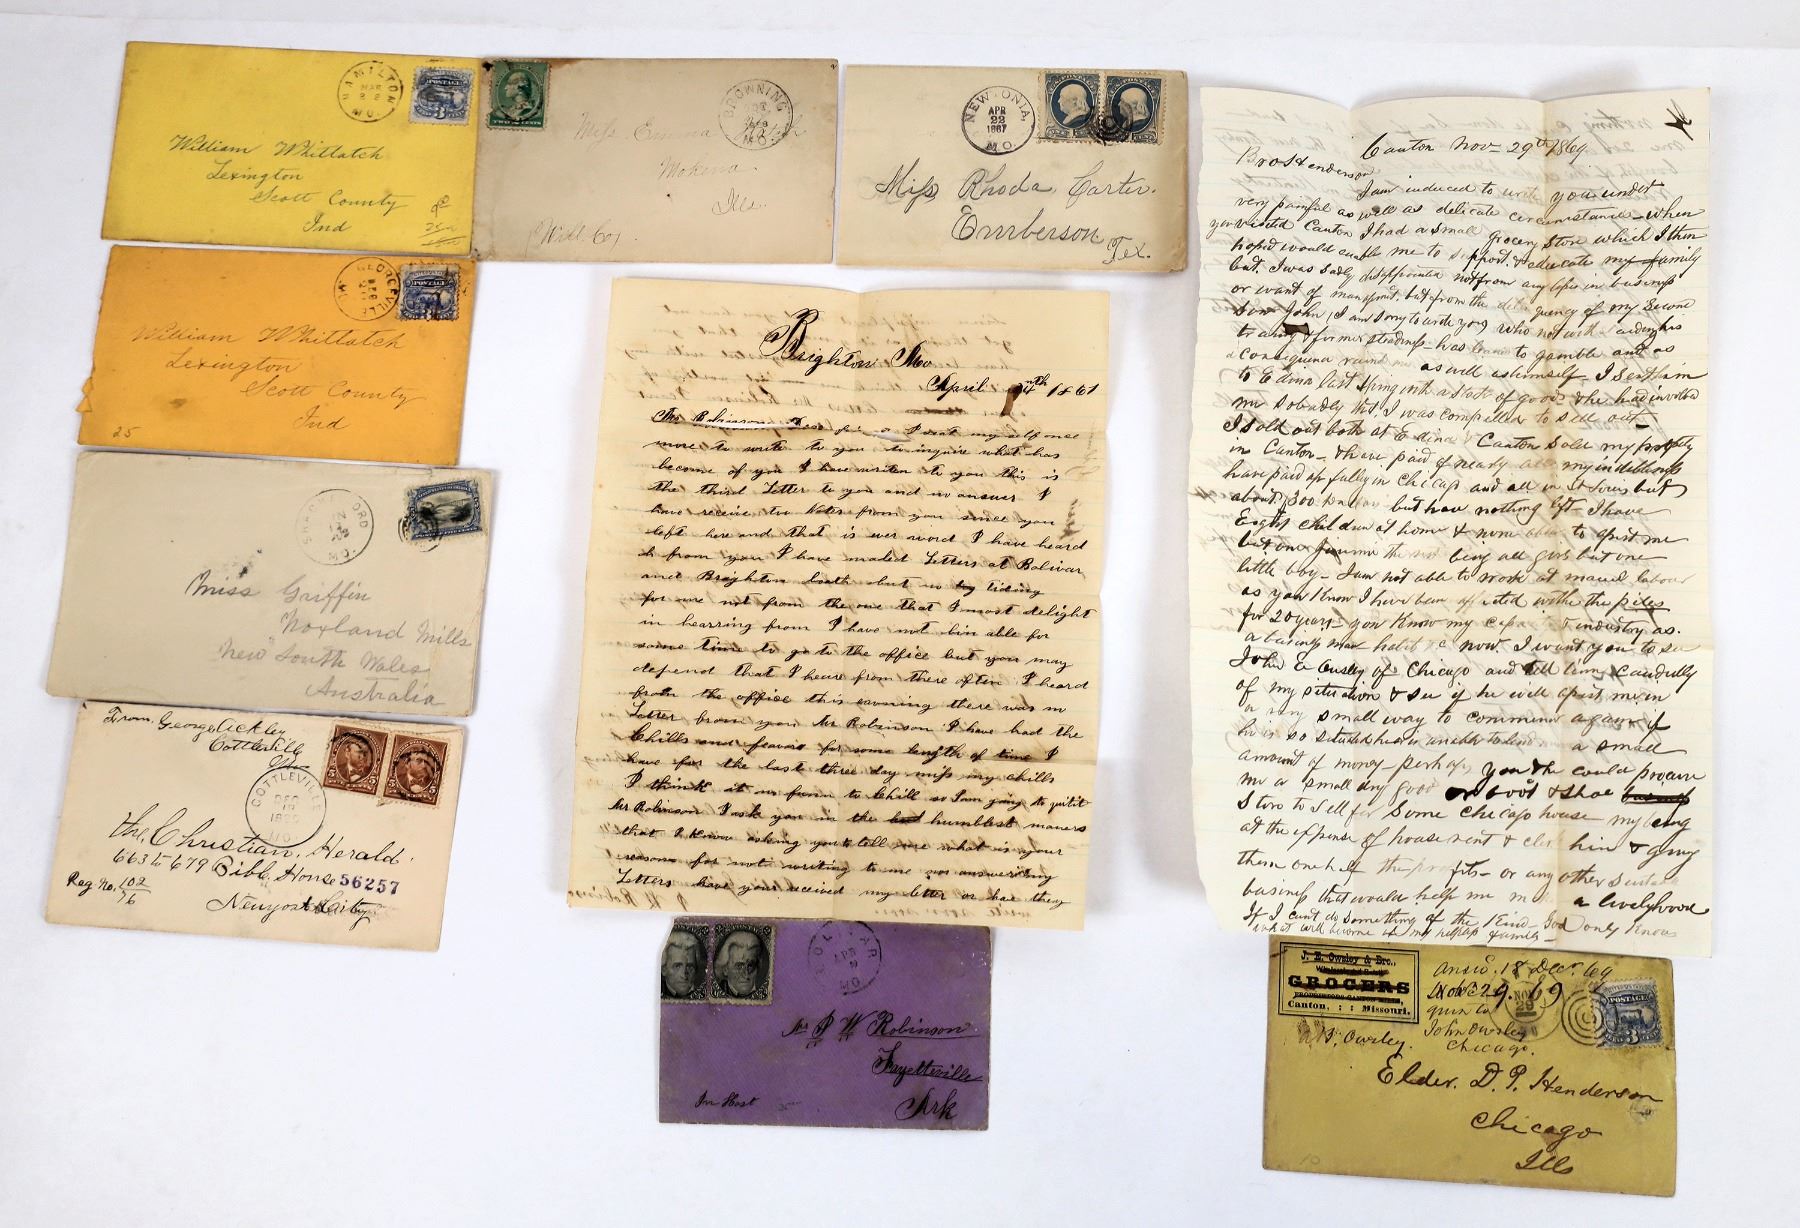 HAMILTON
MAR
22
MO.
POSTAGE
3
William Whittatch
Lexington
Scott County
Ind
TWO CENTS
BROWNING
MO.
Miss Emma
Mokena
Ills.
(Will Co)
NEWTONIA,
APR
22
1887
MO.
Miss Rhoda Carter.
Emberson
Tex.
GEORGEVILLE
POSTAGE
3
William Whittatch
Lexington
Scott County
Ind
25
MO.
Miss Griffin
Noxland Mills
New South Wales
Australia
From, George Ackley
Cottleville
Mo
COTTLEVILLE
DEC
MO.
5 5
The, Christian, Herald.
663 to 679 Bible House 56257
Reg No, 102/76
Newyork City
Brighton Mo
April 24th 1861
Mr Robinson Dear sir I seat my self once
more to write to you to inquire what has
become of you I have writen to you this is
the third Letter to you and no answer I
have receive two Notes from you since you
left here and that is ever word I have heard
from you I have mailed Letters at Bolivar
and Brighton booth but no tiding
for me not from the one that I most delight
in hearring from I have not bin able for
some time to go to the office but you may
depend that I heare from there often I heard
from the office this evening there was no
Letter from you Mr Robinson I have had the
Chills and feavor for some length of time I
have for the last three day miss my chills
I think it no funn to Chill so I am going to quit it
Mr Robinson I ask you in the humblest maners
that I know asking you to tell me what is your
reasons for not writing to me nor answering my
Letters have you received my letter or has they
BOLIVAR
APR
2
MO.
Mr J W Robinson
Fayetteville
Ark
Canton Nov- 29th 1869.
Bro Henderson
I am induced to write you under
very painful as well as delicate circumstances - When
you visited Canton I had a small grocery store which I then
hoped would enable me to support & educate my family
but I was sadly disappointed not from any lofs in businefs
or want of managment. but from the delinquency of my second
Son John (I am sorry to write you) who not with standing his
training & former steadinefs - has learned to gamble and as
a consequence ruined me as well as himself - I sent him
to Edina last Spring with a stock of goods & he had involved
me so badly that I was compelled to sell out -
I sold out both at Edina & Canton Sold my property
in Canton - & have paid of nearly all my indebtednefs
have paid up fully in Chicago and all in St Louis but
about $300 Dollars but have nothing left - I have
Eight children at home & none able to afsist me
but one Jimmie the rest being all girls but one
little boy - I am not able to work at manuel labour
as you know I have been afflicted withe the piles
for 20 years - you know my capacity & industry as.
a businefs man habits &c now. I want you to see
John E Owsley of Chicago and tell him candidly
of my situation & see if he will afsist me in
a very small way to commence again if
he is so situated he is unable to lend a small
amount of money - perhaps you & he could procure
me a small dry good or boot & shoe
Store to Sell for some Chicago house my being
at the expense of house rent & clerk hire & giving
them one half the profits - or any other suitable
businefs that would help me make a livelyhood
If I cant do something of the kind - God only knows
what will become of my helplefs family -
J. E. Owsley & Bro.,
GROCERS
Canton, : : Missouri.
Answ. 18 Decr 69
Nov 29. 69
NOV
29
John Owsley
Chicago.
Owsley.
POSTAGE
3
Elder. D. P. Henderson
Chicago
Ills
10